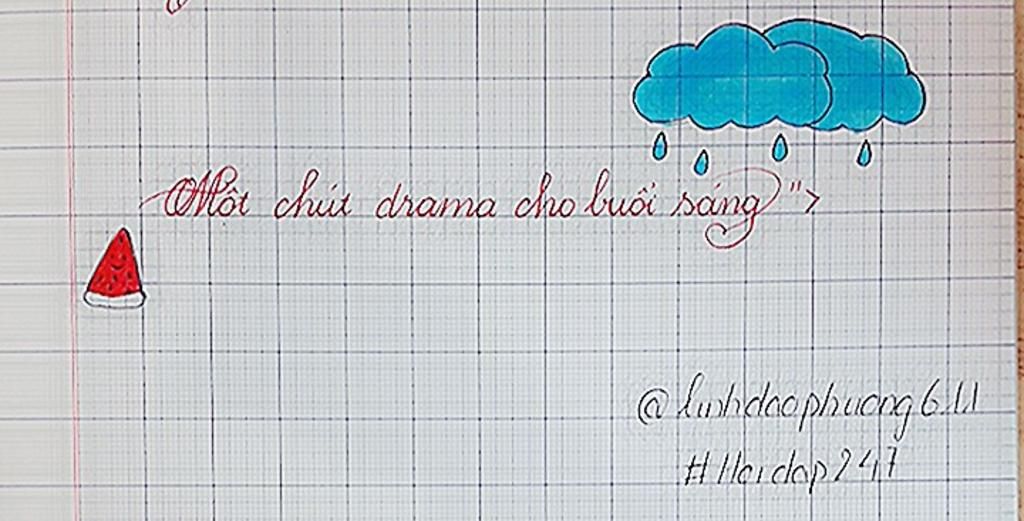 Một chút drama cho buổi sáng ">
@linhdaophuong611
#Hoidap247